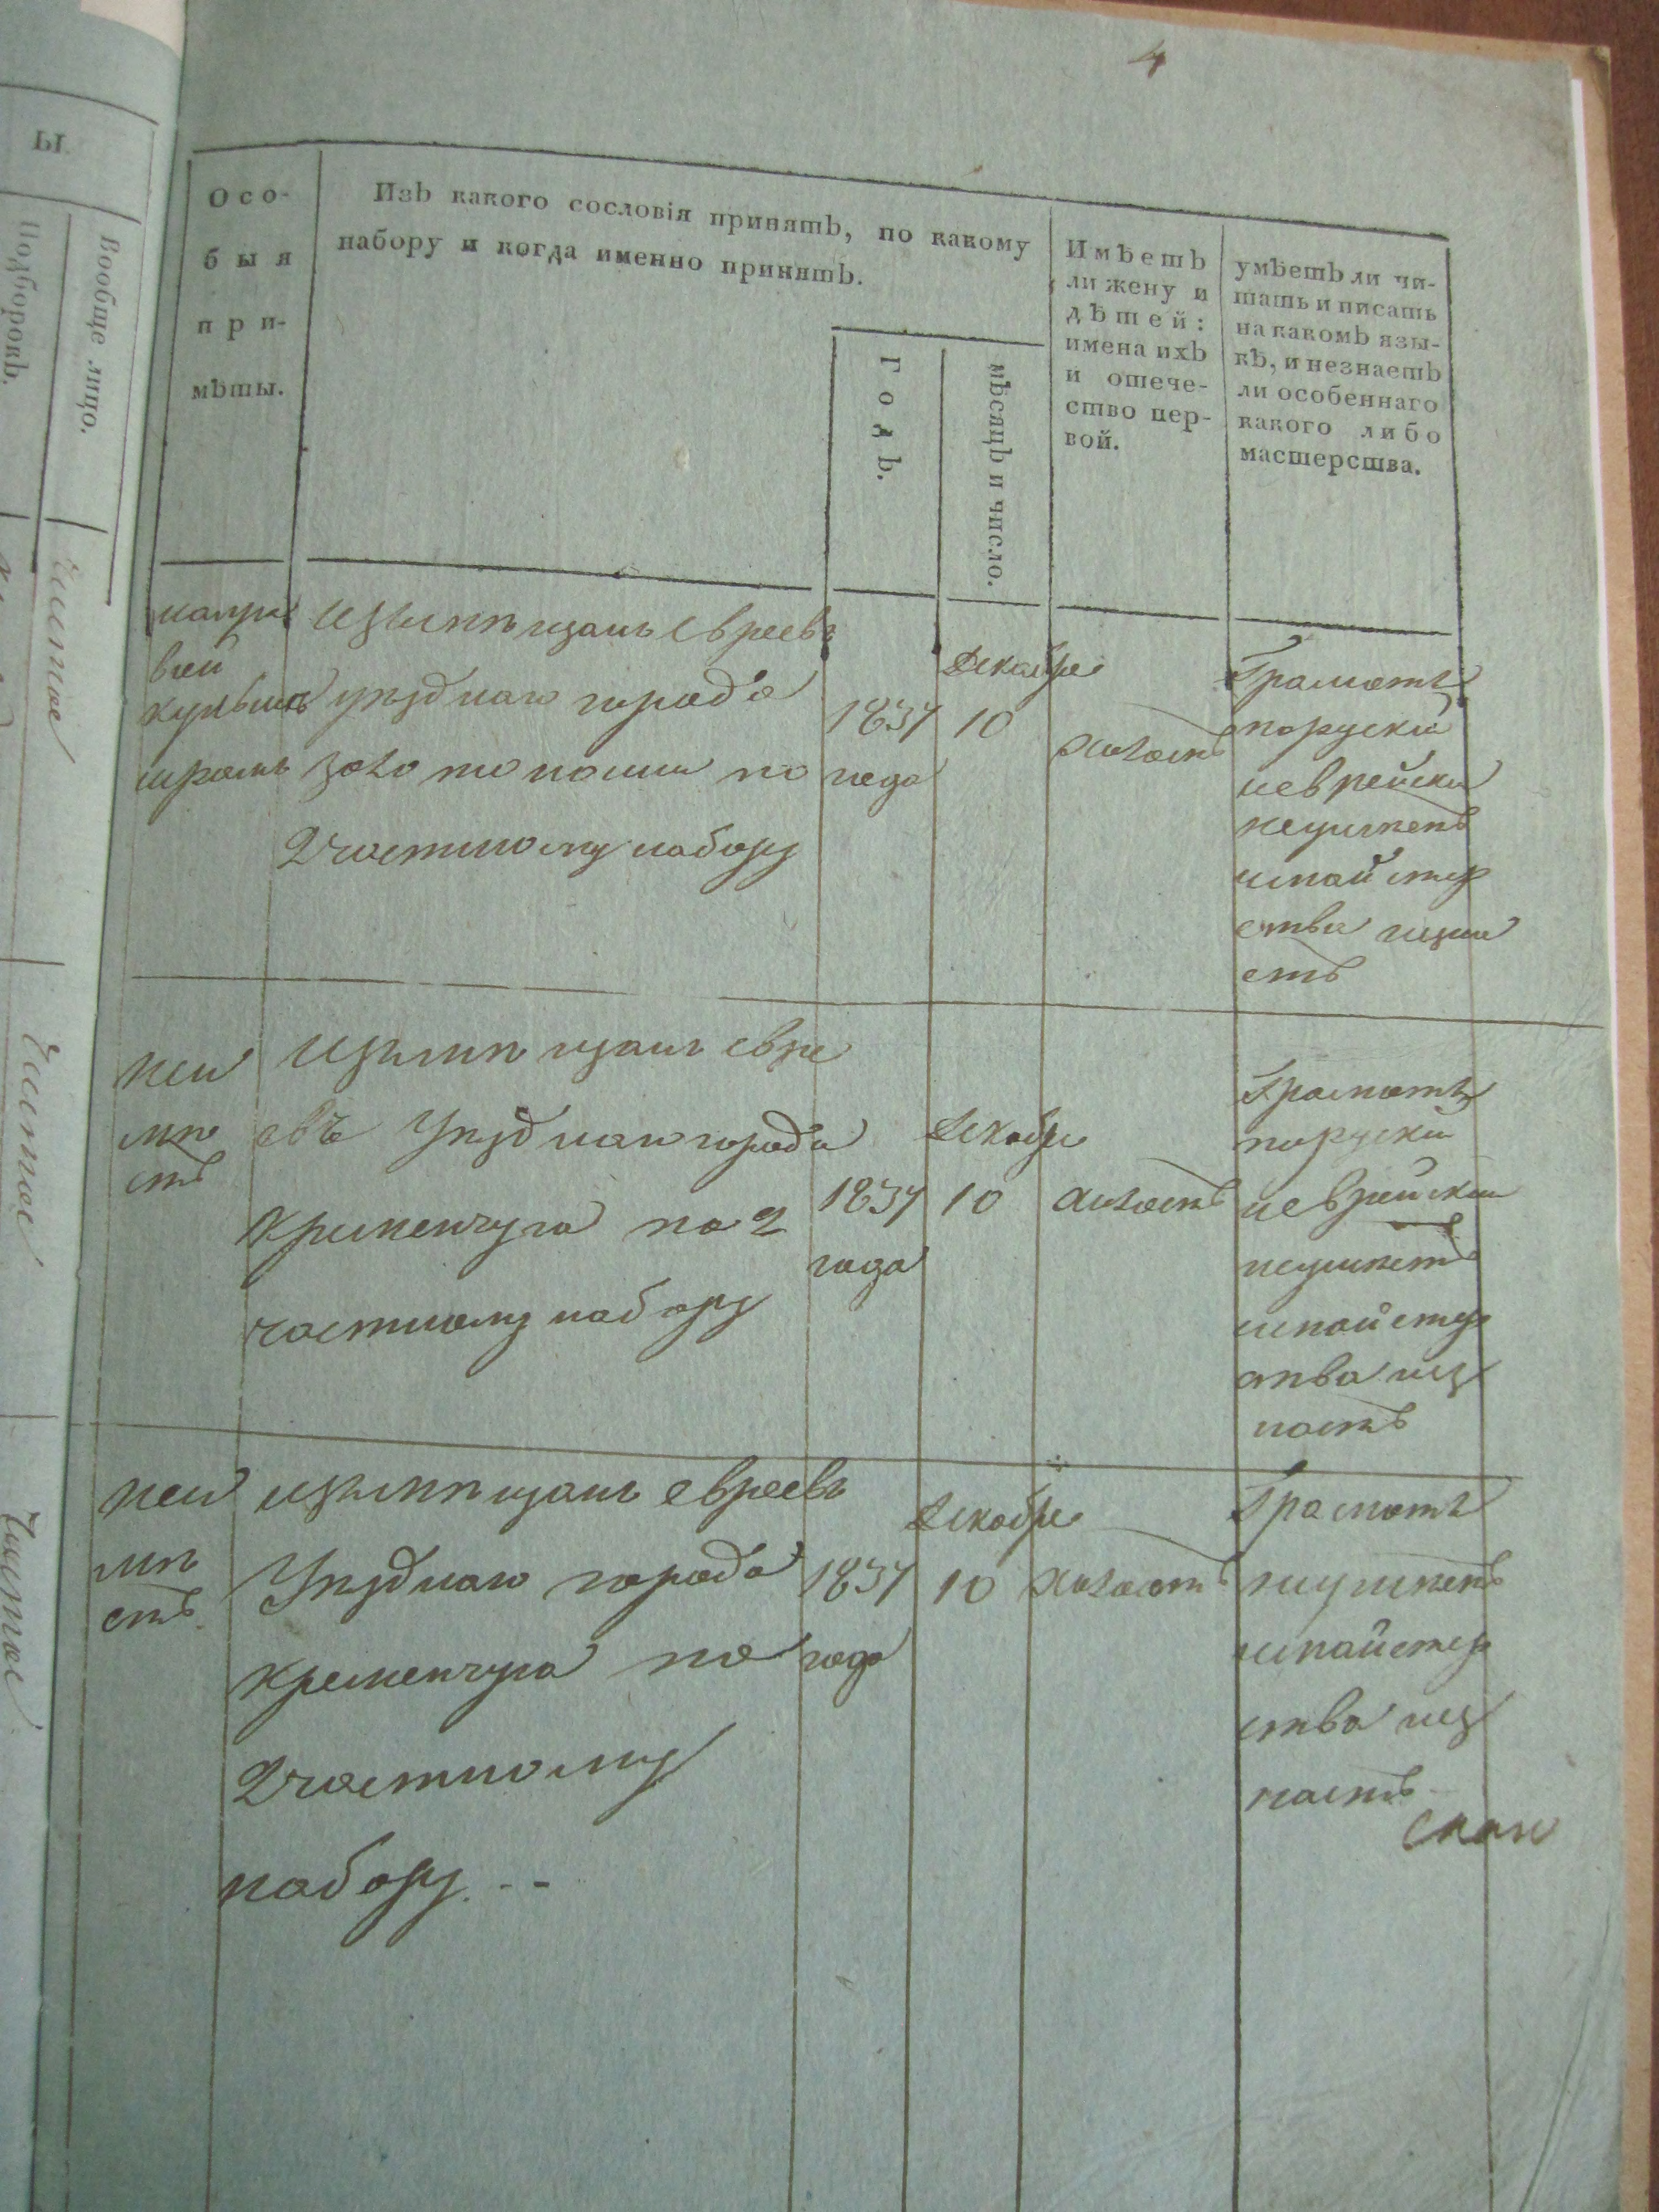 4
ы.
Подбородкъ.
Вообще лицо.
Чистое
Чистое
Чистое
Осо-
быя
при-
мѣты.
Изъ какого сословія принятъ, по какому
набору и когда именно принятъ.
Годъ.
мѣсяцъ и число.
Имѣетъ
ли жену и
дѣтей:
имена ихъ
и отече-
ство пер-
вой.
умѣетъ ли чи-
тать и писать
на какомъ язы-
кѣ, и незнаетъ
ли особеннаго
какого либо
мастерства.
шрамъ
измѣщанъ евреевъ
уѣзднаго города
золотоноши по
2 частному набору
1837
года
Декабря
10
холостъ
Грамотѣ
поруски
иеврейски
неумѣетъ
имайстер
ства незна
етъ
неи
мѣ
етъ
измѣщанъ евре
евъ уѣзднаго города
кременчуга по 2
частному набору
1837
года
Декабря
10
холостъ
Грамотѣ
поруски
иеврейски
неумѣетъ
имайстер
ства нез
наетъ
неи
мѣ
етъ
измѣщанъ евреевъ
Уѣзднаго города
кременчуга по
2 частному
набору --
1837
года
Декабря
10
холостъ
Грамотѣ
неумѣетъ
имайстер
ства нез
наетъ